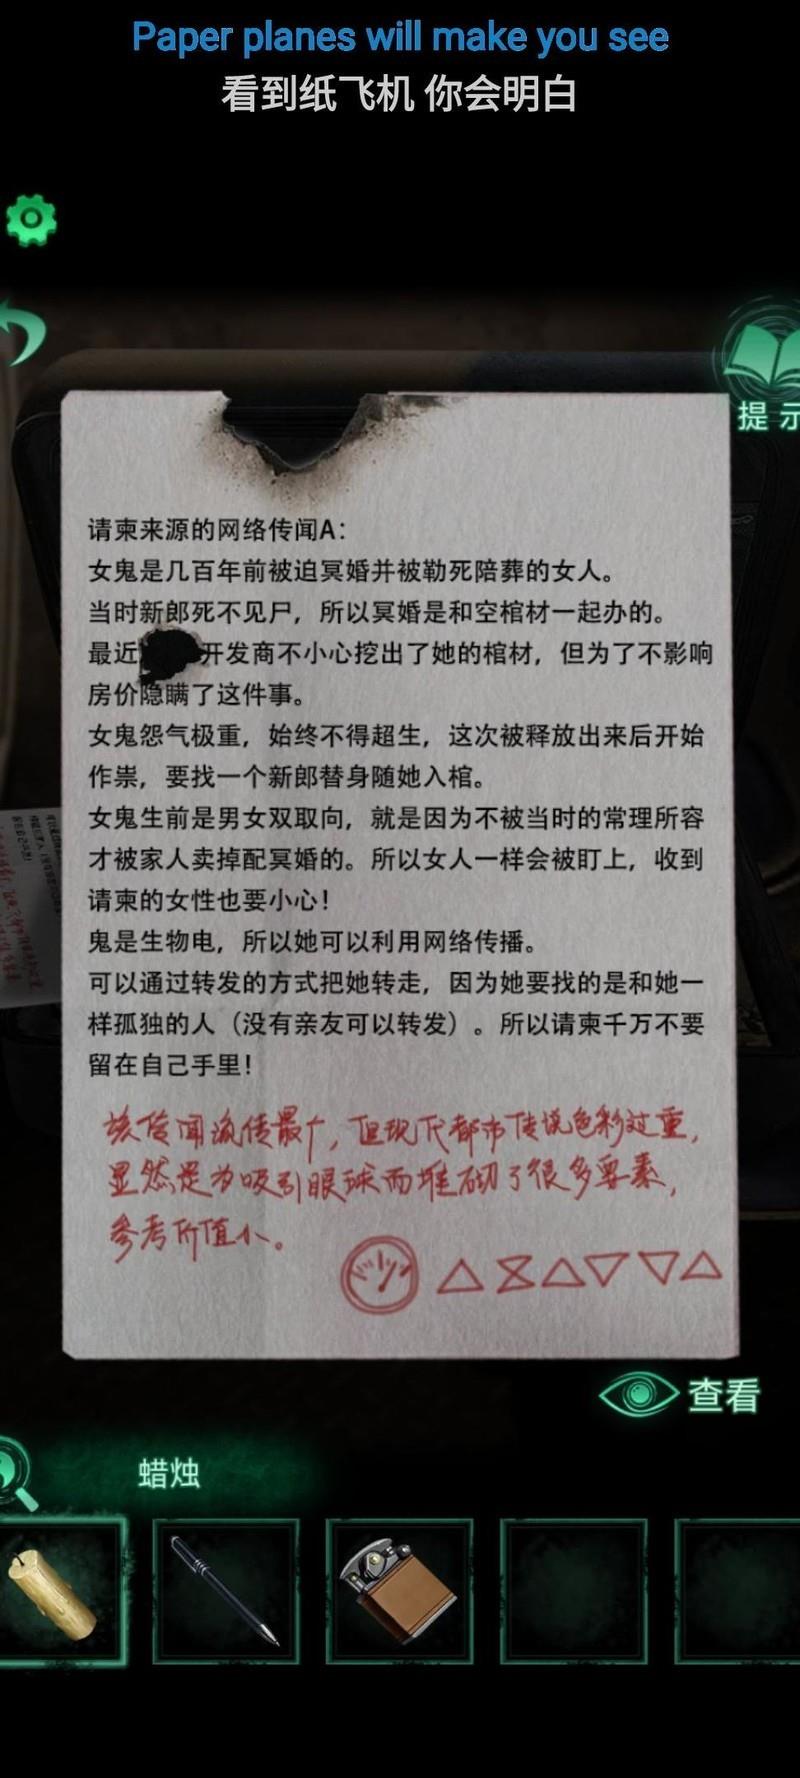 Paper planes will make you see
看到纸飞机 你会明白
提示
请柬来源的网络传闻A：
女鬼是几百年前被迫冥婚并被勒死陪葬的女人。
当时新郎死不见尸，所以冥婚是和空棺材一起办的。
最近 开发商不小心挖出了她的棺材，但为了不影响
房价隐瞒了这件事。
女鬼怨气极重，始终不得超生，这次被释放出来后开始
作祟，要找一个新郎替身随她入棺。
女鬼生前是男女双取向，就是因为不被当时的常理所容
才被家人卖掉配冥婚的。所以女人一样会被盯上，收到
请柬的女性也要小心！
鬼是生物电，所以她可以利用网络传播。
可以通过转发的方式把她转走，因为她要找的是和她一
样孤独的人（没有亲友可以转发）。所以请柬千万不要
留在自己手里！
该传闻流传最广，但现代都市传说色彩过重，
显然是为吸引眼球而堆砌了很多要素，
参考价值小。
查看
蜡烛